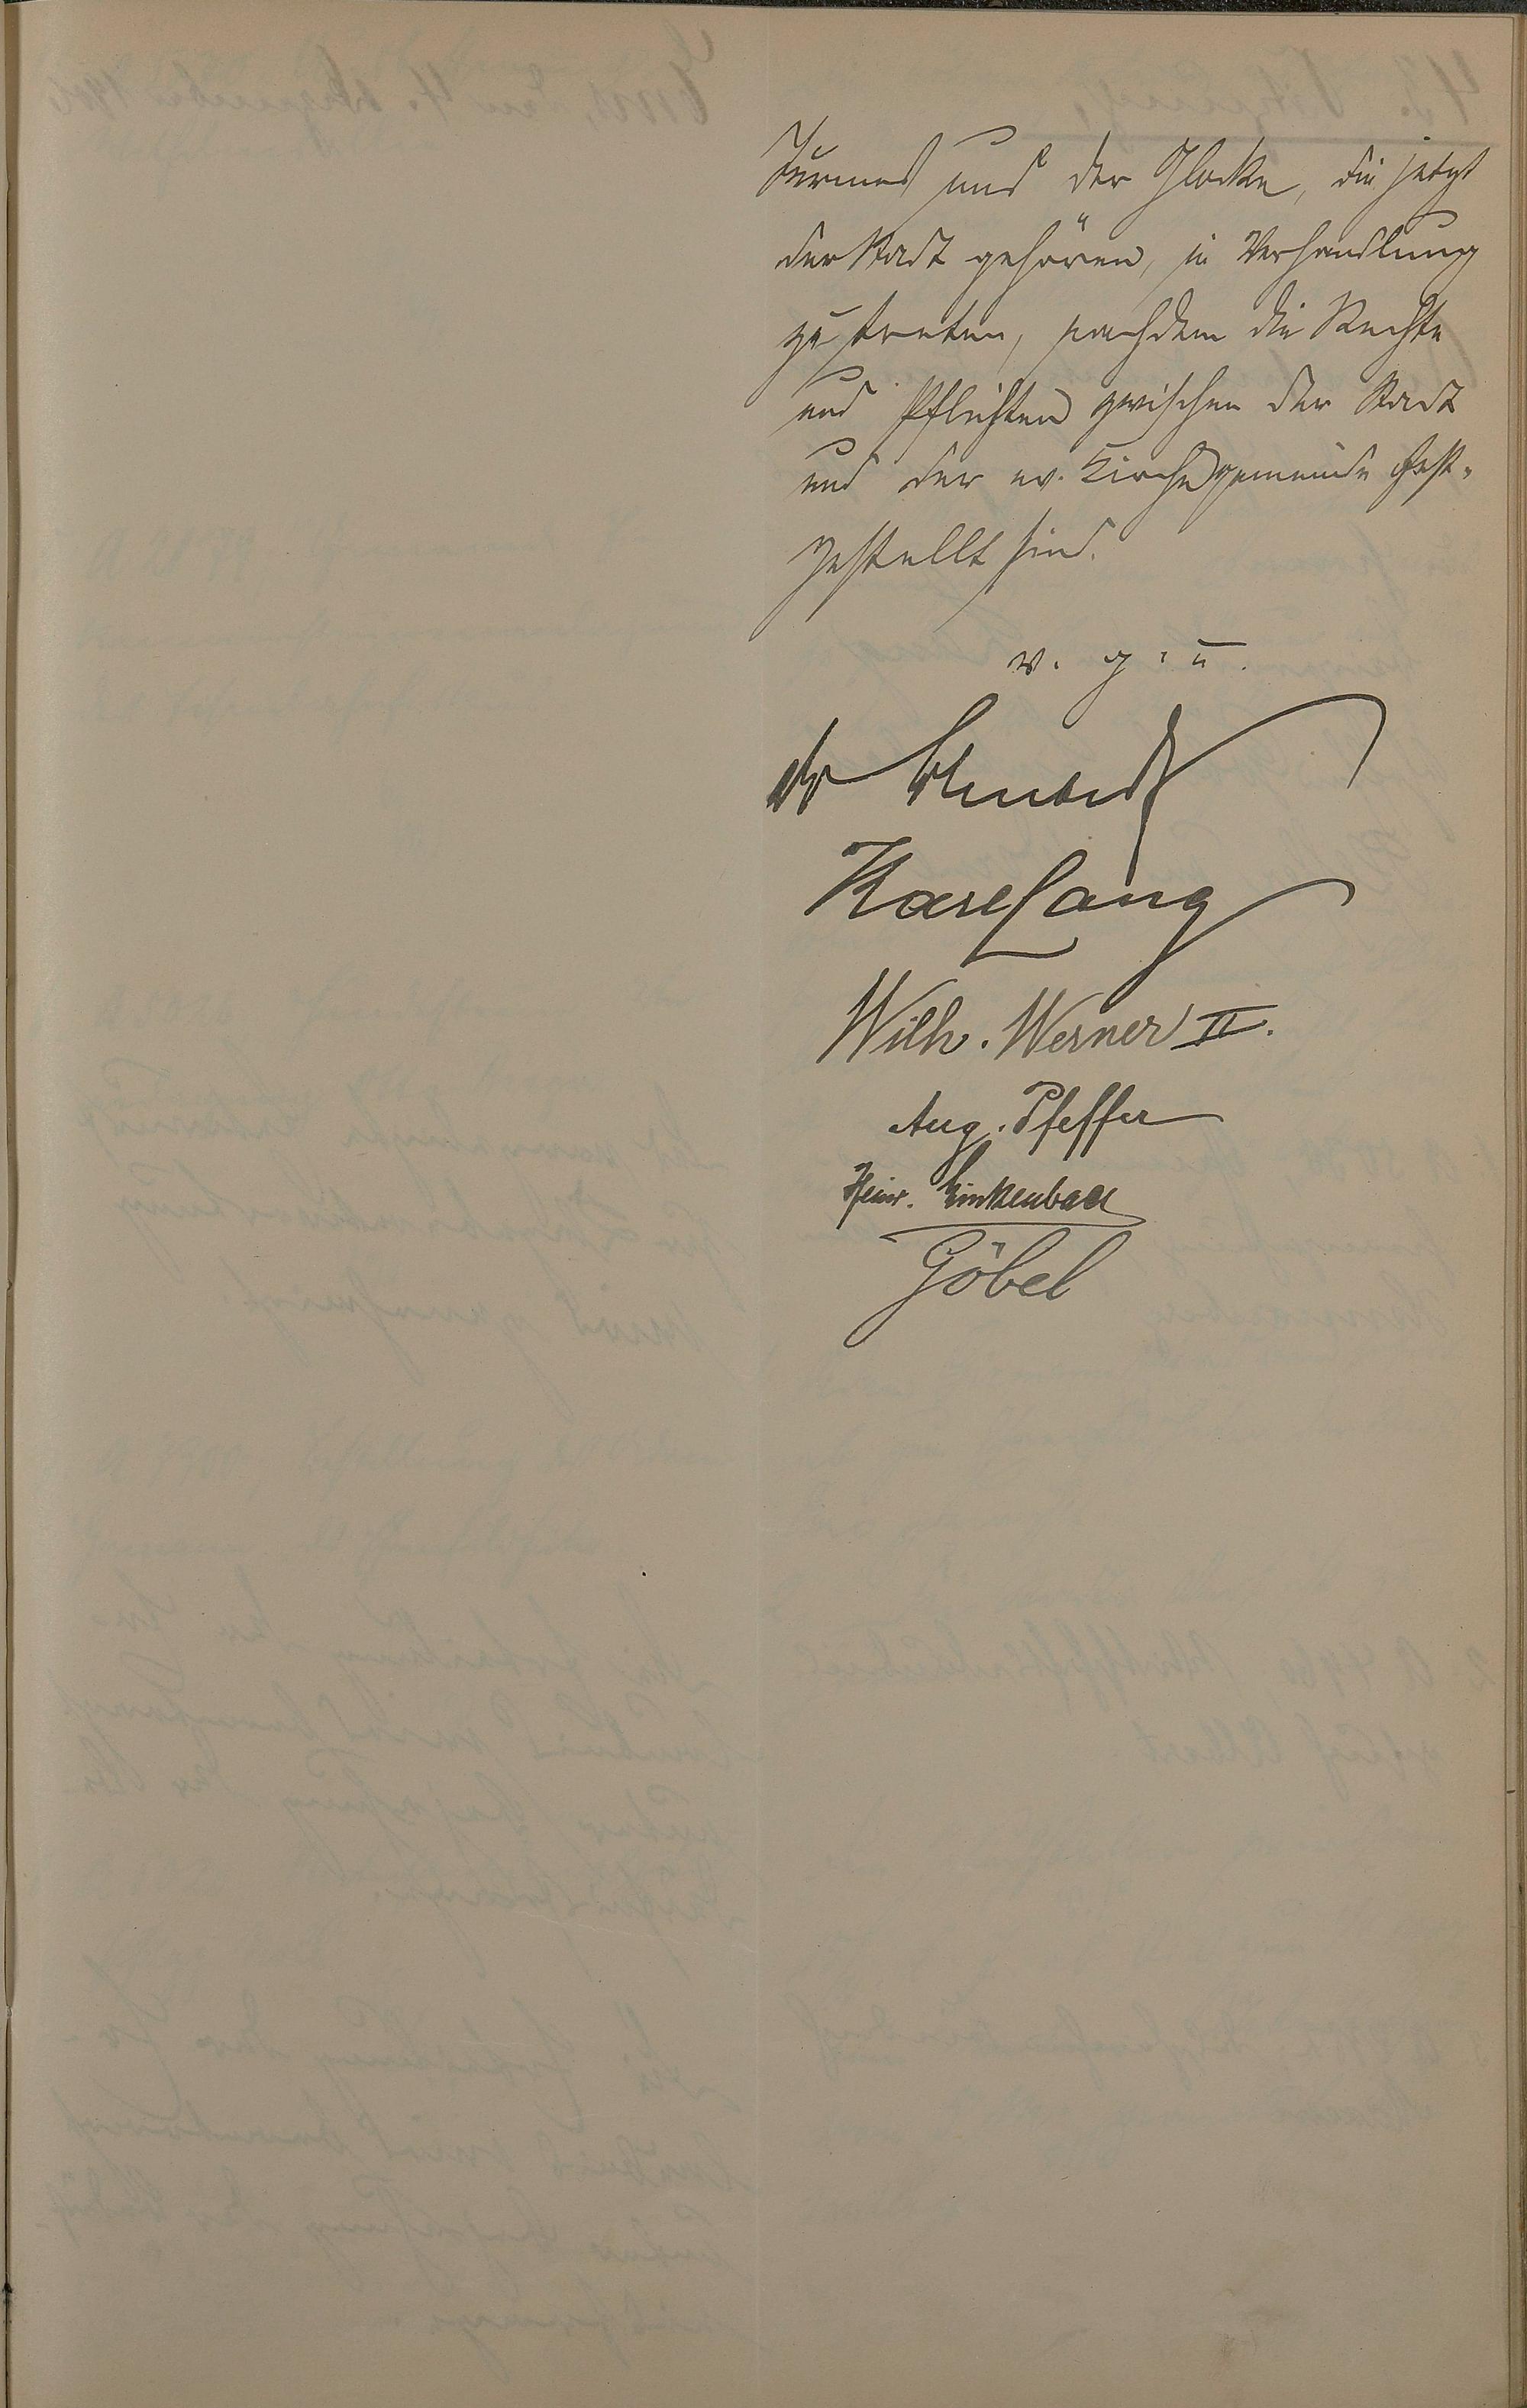 Turmes und der Glocke, die jetzt
der Stadt gehören, in Verhandlung
zu treten, nachdem die Rechte
und Pflichten zwischen der Stadt
und der ev. Kirchengemeinde fest-
gestellt sind.
v. g. u.
Dr Schubert
Karl Lang
Wilh. Werner II.
Aug. Pfeffer
Heinr. Linkenbach
Göbel